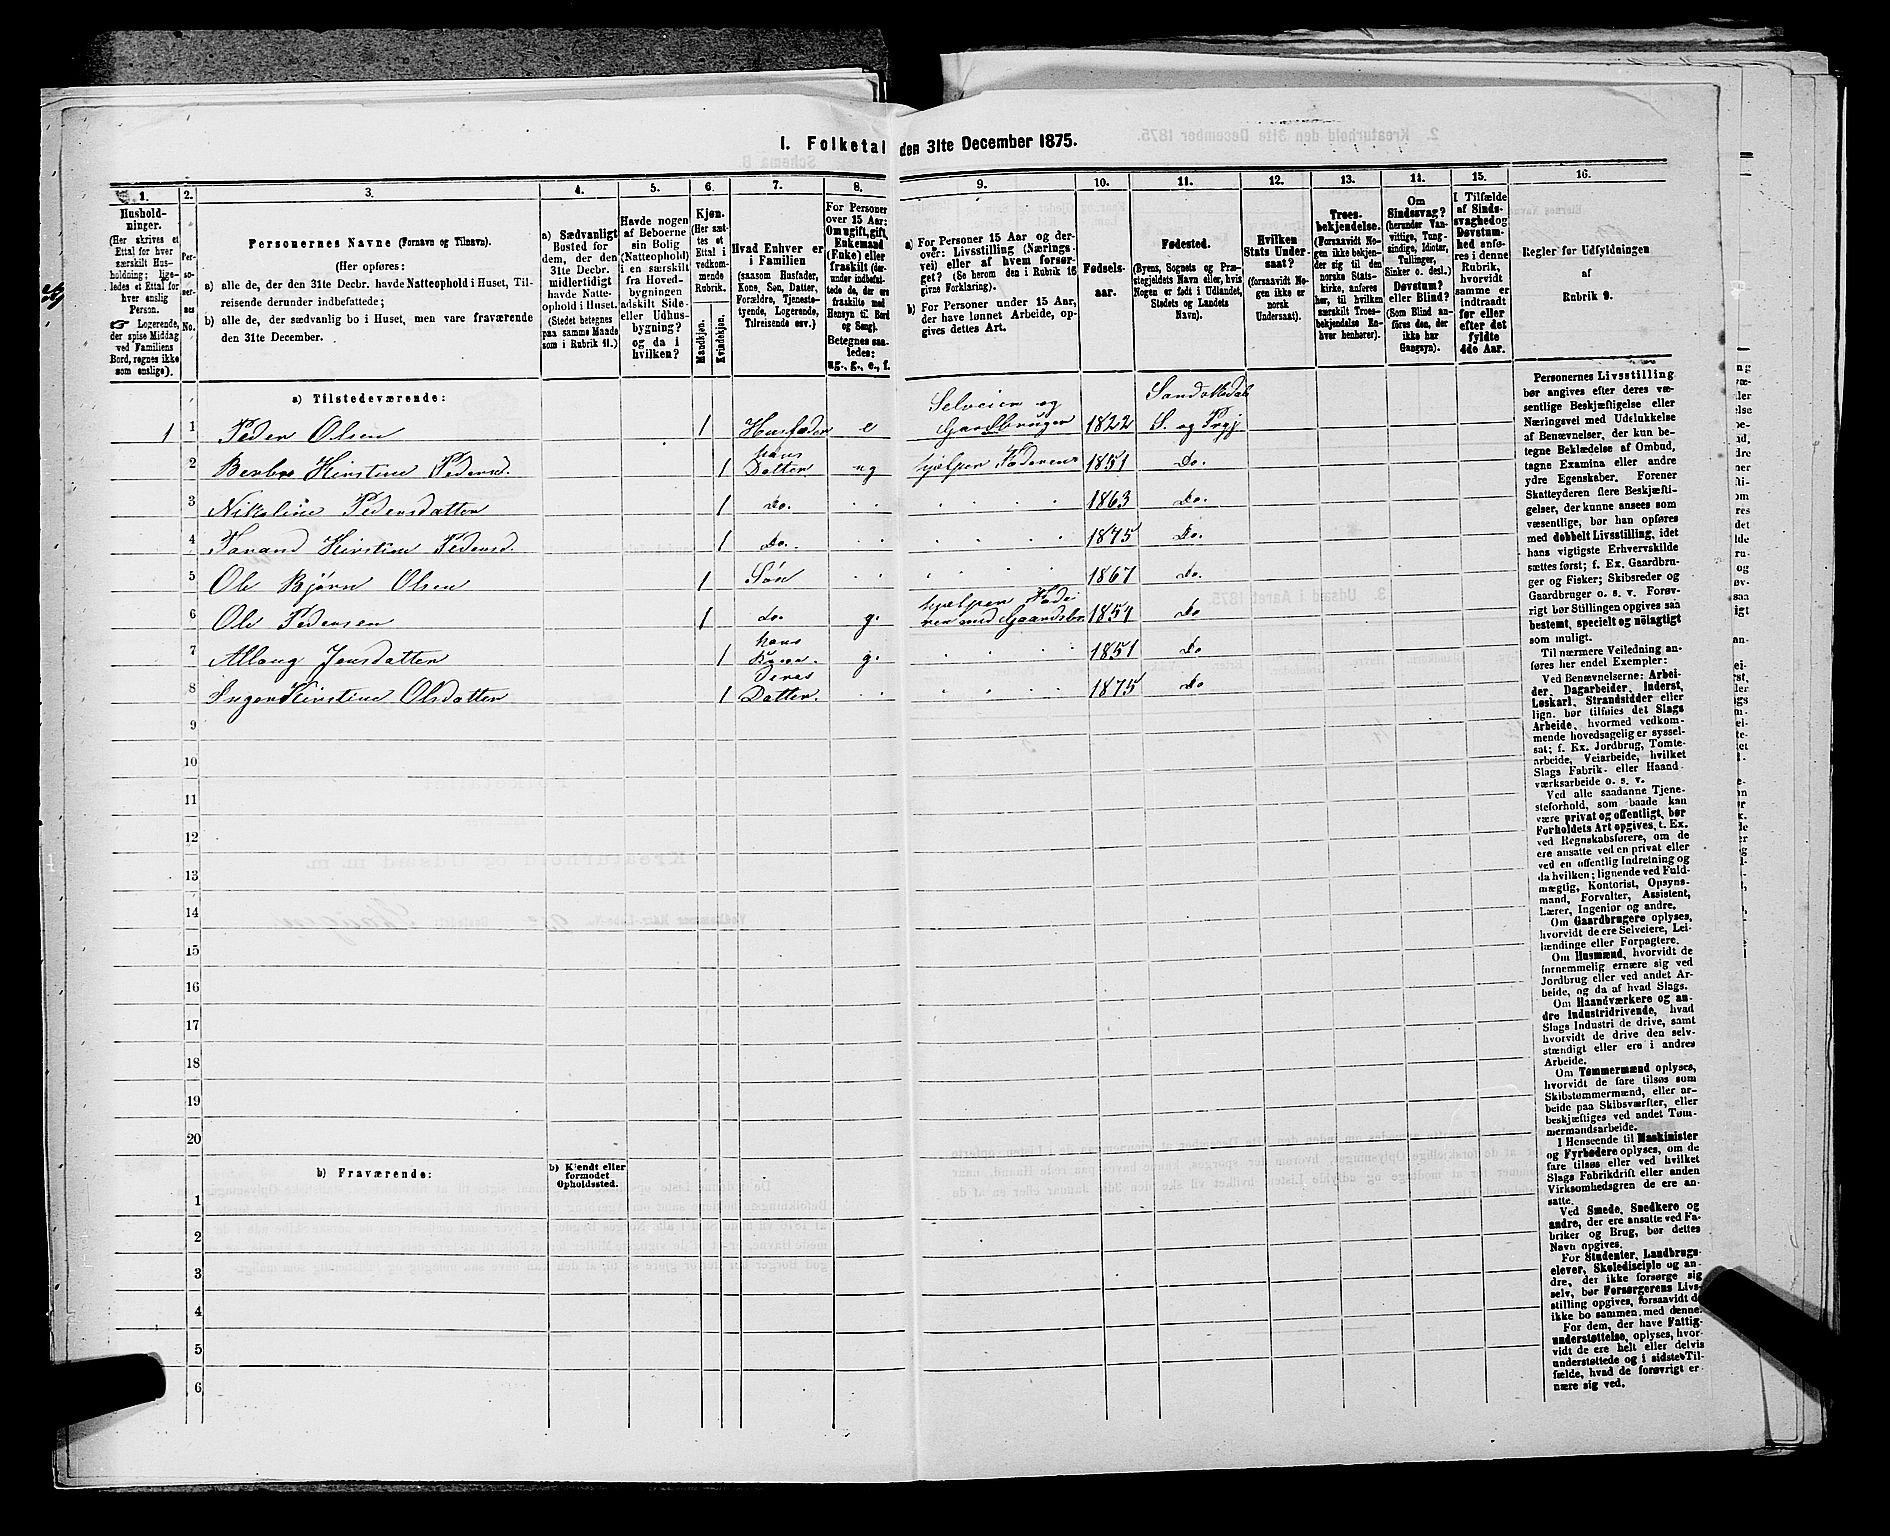 I. Folketal den 31te December 1875.
1. 2. 3. 4. 5. 6. 7. 8. 9. 10. 11. 12. 13. 14. 15. 16.
Hushold-
ninger.
(Her skrives et
Ettal for hver
særskilt Hus-
holdning; lige-
ledes et Ettal for
hver enslig
Person.
Logerende,
der spise Middag
ved Familiens
Bord, regnes ikke
som enslige).
Per-
so-
ner-
nes
No.
Personernes Navne (Fornavn og Tilnavn).
(Her opføres:
a) alle de, der den 31te Decbr. havde Natteophold i Huset, Til-
reisende derunder indbefattede;
b) alle de, der sædvanlig bo i Huset, men vare fraværende
den 31te December.
a) Sædvanligt
Bosted for
dem, der den
31te Decbr.
midlertidigt
havde Natte-
ophold i Huset.
(Stedet betegnes
paa samme Maade
som i Rubrik 11.)
Havde nogen
af Beboerne
sin Bolig
(Natteophold)
i en særskilt
fra Hoved-
bygningen
adskilt Side-
eller Udhus-
bygning?
og da i
hvilken?
Kjøn.
(Her sæt-
tes et
Ettal i
vedkom-
mende
Rubrik.
Mandkjøn.
Kvindekjøn.
Hvad Enhver er
i Familien
(saasom Husfader,
Kone, Søn, Datter,
Forældre, Tjeneste-
tyende, Logerende,
Tilreisende osv.)
For Personer
over 15 Aar:
Om ugift, gift,
Enkemand
(Enke) eller
fraskilt (der-
under indbefat-
tede de, der ere
fraskilte med
Hensyn til Bord
og Seng).
Betegnes saa-
ledes:
ug., g., e., f.
a) For Personer 15 Aar og der-
over: Livsstilling (Nærings-
vei) eller af hvem forsør-
get? (Se herom den i Rubrik 16
givne Forklaring).
b) For Personer under 15 Aar,
der have lønnet Arbeide, op-
gives dettes Art.
Fødsels-
aar.
Fødested.
(Byens, Sognets og Præ-
stegjeldets Navn eller, hvis
Nogen er født i Udlandet,
Stedets og Landets
Navn).
Hvilken
Stats Under-
saat?
(forsaavidt No-
gen ikke er
norsk
Undersaat).
Troes-
bekjendelse.
(Forsaavidt No-
gen ikke bekjen-
der sig til den
norske Stats-
kirke, anføres
her, til hvilken
særskilt Troes-
bekjendelse En-
hver henhører).
Om
Sindssvag?
(herunder Van-
vittige, Tung-
sindige, Idioter,
Tullinger,
Sinker o. desl.)
Døvstum?
eller Blind?
(Som Blind an-
føres den, der
ikke har
Gangsyn).
I Tilfælde
af Sinds-
svaghed og
Døvstum-
hed anfø-
res i denne
Rubrik,
hvorvidt
samme er
indtraadt
før eller
efter det
fyldte
4de Aar.
Regler for Udfyldningen
af
Rubrik 9.
a) Tilstedeværende:
1 1 Peder Olsen 1 Husfader e Selveier og Gaardbruger 1822 S. og Prgj
2 Kirstine Pedersd. 1 hans Datter ug hjælper Faderen 1851 Do.
3 Nikoline Pedersdatter 1 Do. 1863 Do.
4 Kirstine Pedersd. 1 Do. 1875 Do.
5 Ole Bjørn Olsen 1 Søn 1867 Do.
6 Ole Pedersen 1 do. g. hjælper 1854 Do
7 Jensdatter 1 hans g. 1851 Do
8 Inger Kirstine Olsdatter 1 deres Datter. 1875 Do
9
10
11
12
13
14
15
16
17
18
19
20
b) Fraværende:
b) Kjendt eller
formodet
Opholdssted.
1
2
3
4
5
6
Personernes Livsstilling
bør angives efter deres væ-
sentlige Beskjæftigelse eller
Næringsvei med Udelukkelse
af Benævnelser, der kun be-
tegne Beklædelse af Ombud,
tagne Examina eller andre
ydre Egenskaber. Forener
Skatteyderen flere Beskjæfti-
gelser, der kunne ansees som
væsentlige, bør han opføres
med dobbelt Livsstilling, idet
hans vigtigste Erhvervskilde
sættes først; f. Ex. Gaardbru-
ger og Fisker; Skibsreder og
Gaardbruger o. s. v. Forøv-
rigt bør Stillingen opgives saa
bestemt, specielt og nøiagtigt
som muligt.
Til nærmere Veiledning an-
føres her endel Exempler:
Ved Benævnelserne: Arbei-
der, Dagarbeider, Inderst,
Løskarl, Strandsidder eller
lign. bør tilføies det Slags
Arbeide, hvormed vedkom-
mende hovedsagelig er syssel-
sat; f. Ex. Jordbrug, Tomte-
arbeide, Veiarbeide, hvilket
Slags Fabrik- eller Haand-
værksarbeide o. s. v.
Ved alle saadanne Tjene-
steforhold, som baade kan
være privat og offentligt, bør
Forholdets Art opgives, t. Ex.
ved Regnskabsførere, om de
ere ansatte ved en privat eller
ved en offentlig Indretning og
da hvilken; lignende ved Fuld-
mægtig, Kontorist, Opsyns-
mand, Forvalter, Assistent,
Lærer, Ingeniør og andre.
Om Gaardbrugere oplyses,
hvorvidt de ere Selveiere, Lei-
lændinge eller Forpagtere.
Om Husmænd, hvorvidt de
fornemmelig ernære sig ved
Jordbrug eller ved andet Ar-
beide, og da af hvad Slags.
Om Haandværkere og an-
dre Industridrivende, hvad
Slags Industri de drive, samt
hvorvidt de drive den selv-
stændigt eller ere i andres
Arbeide.
Om Tømmermænd oplyses,
hvorvidt de fare tilsøs som
Skibstømmermænd, eller ar-
beide paa Skibsværfter, eller
beskjæftiges ved andet Tøm-
mermandsarbeide.
I Henseende til Maskinister
og Fyrbødere oplyses, om de
fare tilsøs eller ved hvilket
Slags Fabrikdrift eller anden
Virksomhedsgren de ere an-
satte.
Ved Smede, Snedkere og
andre, der ere ansatte ved Fa-
briker og Brug, bør dettes
Navn opgives.
For Studenter, Landbrugs-
elever, Skoledisciple og an-
dre, der ikke forsørge sig
selv, bør Forsørgerens Livs-
stilling opgives, forsaavidt de
ikke bo sammen med denne.
For dem, der have Fattig-
understøttelse, oplyses, hvor-
vidt de ere helt eller delvis
understøttede og i sidste Til-
fælde, hvad de forøvrigt er-
nære sig ved.